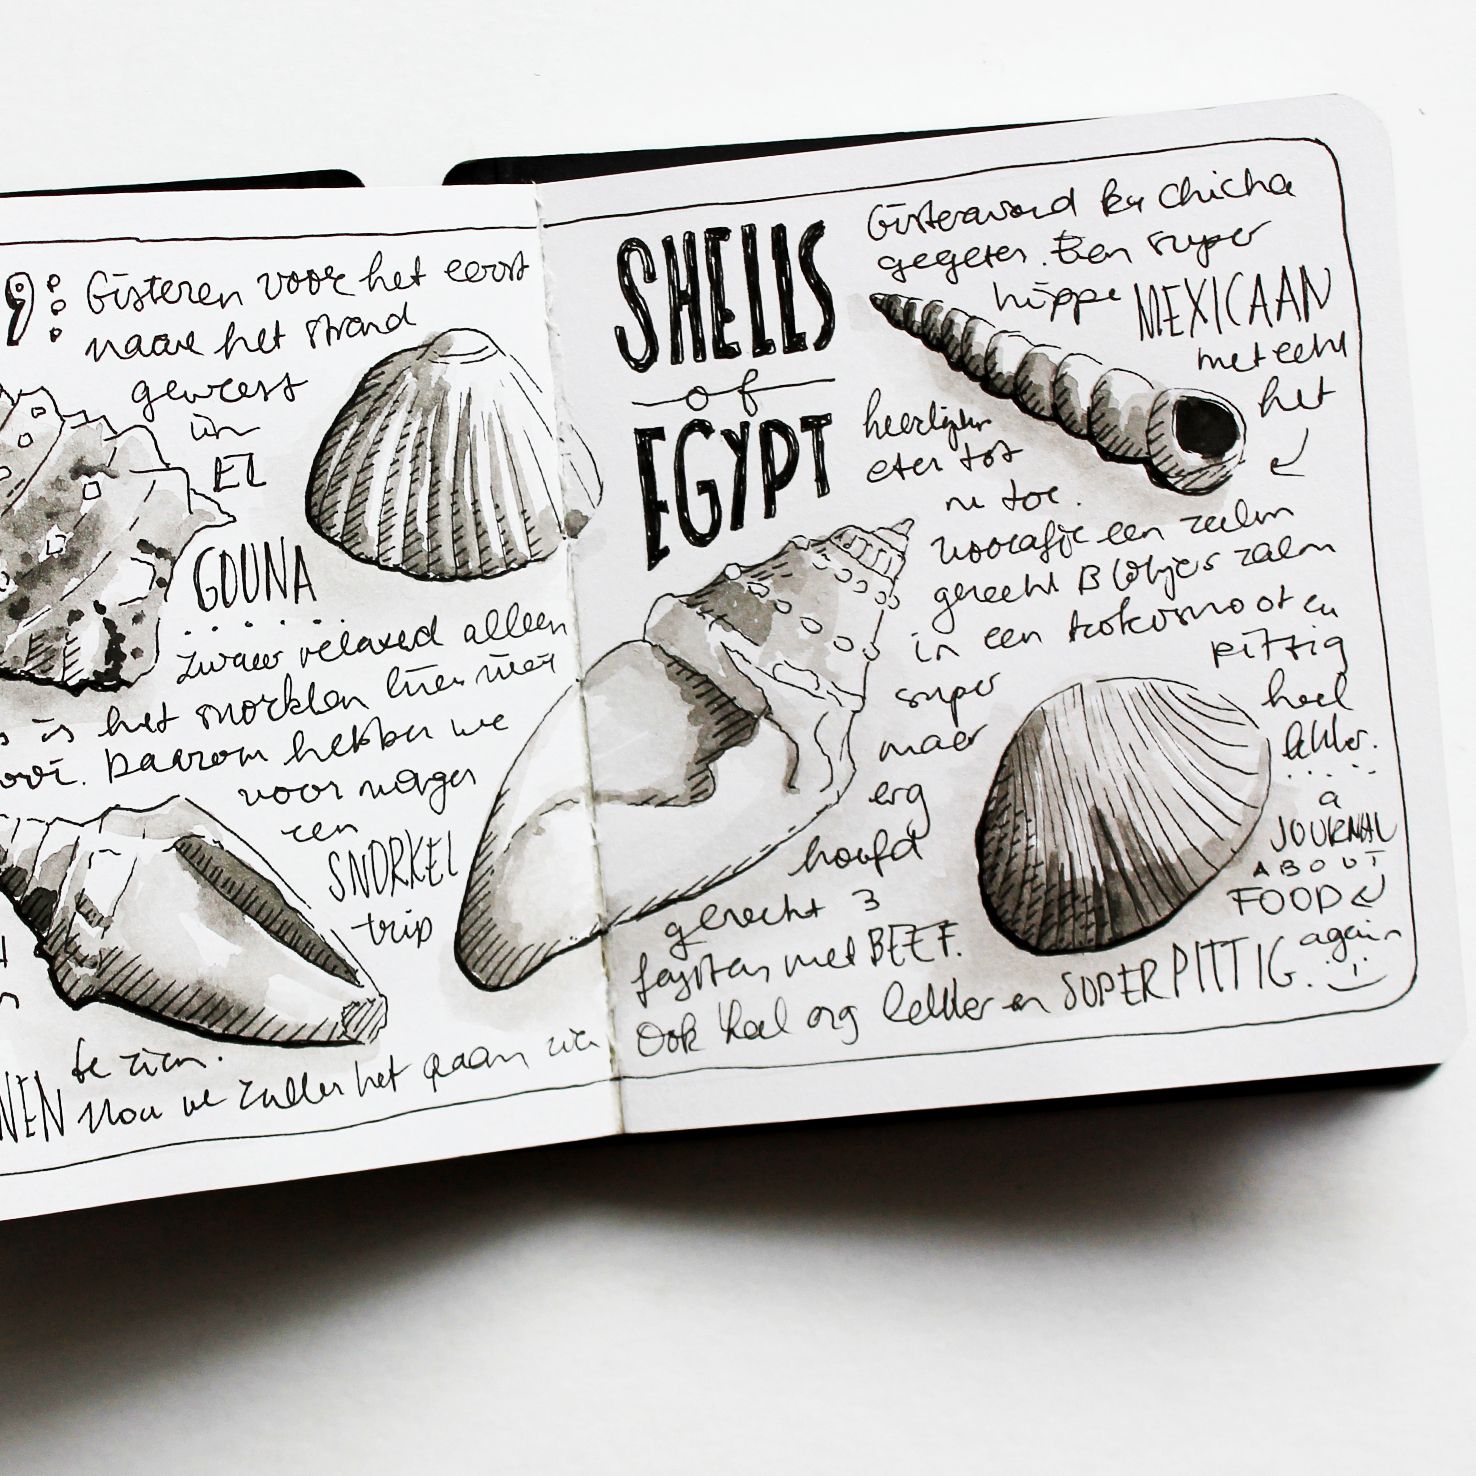 9: Gisteren voor het eerst
naar het strand
geweest
in
EL
GOUNA
zwaar relaxed alleen
is het snorklen hier niet
Daarom hebben we
voor morgen
een
SNORKEL
trip
te zien.
NEN Nou we zullen het gaan zien
SHELLS
of
EGYPT
Gisteravond bij Chicha
gegeten. Een super
hippe MEXICAAN
met echt
het
heerlijkste
eten tot
nu toe.
voorafje een
gerecht zalm
in een kokosnoot en
pittig
super
heel
maar
lekker.
erg
hoofd
gerecht 3
fajitas met BEEF.
Ook heel erg lekker en SUPER PITTIG.
a
JOURNAL
ABOUT
FOOD
again